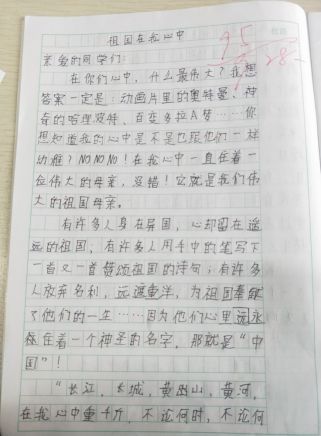 祖国在我心中
95
28
亲爱的同学们:
在你们心中,什么最伟大?我想
答案一定是:动画片里的奥特曼、神
奇的哈理波特、百变多拉A梦……你
想知道我的心中是不是也跟他们一样
幼稚?NONONO!在我心中一直住着一
位伟大的母亲,没错!它就是我们伟
大的祖国母亲。
有许多人身在异国,心却留在遥
远的祖国,有许多人用手中的笔写下
一首又一首赞颂祖国的诗句;有许多
人放弃名利,远渡重洋,为祖国奉献
了他们的一生……因为他们心里永
在着一个神圣的名字,那就是“中
国”!
“长江,长城,黄山,黄河,
在我心中重千斤,不论何时,不论何